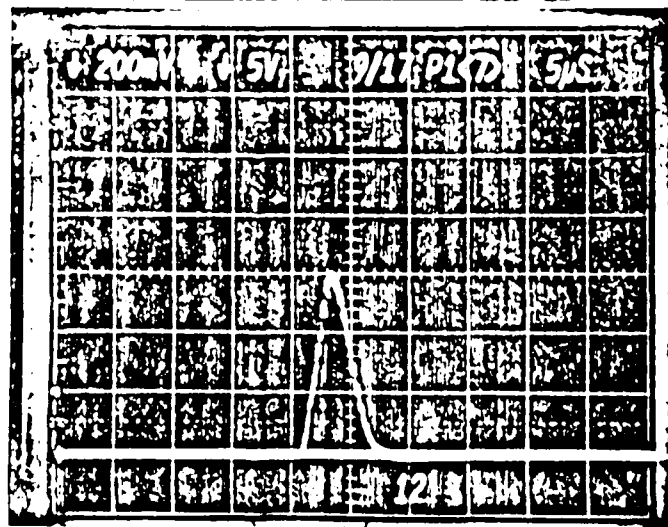 200mV 5V 9/17 P1<T> 5µS
121